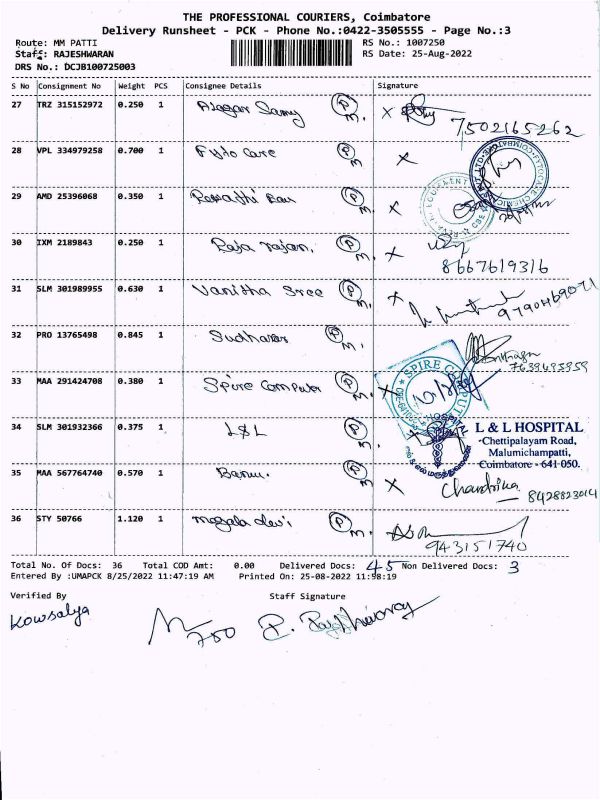 THE PROFESSIONAL COURIERS, Coimbatore
Delivery Runsheet - PCK - Phone No.:0422-3505555 - Page No.:3
Route: MM PATTI RS No.: 1007250
Staff: RAJESHWARAN RS Date: 25-Aug-2022
DRS No.: DCJB100725003
S No Consignment No Weight PCS Consignee Details Signature
27 TRZ 315152972 0.250 1 Alagar Samy P M. X
7502165262
28 VPL 334979258 0.700 1 Fyto Care P M. X
29 AMD 25396068 0.350 1 P M. X
30 IXM 2189843 0.250 1 Raja rajan. P M. X
8667619316
31 SLM 301989955 0.630 1 Vanitha Sree P M. X
9790469071
32 PRO 13765498 0.845 1 P M.
7639495959
33 MAA 291424708 0.380 1 Spire Computer P M. X
SPIRE COMPUT
34 SLM 301932366 0.375 1 L&L P M. X
L & L HOSPITAL
Chettipalayam Road,
Malumichampatti,
Coimbatore - 641 050.
35 MAA 567764740 0.570 1 Banu. P M. X Chandrika
8428823014
36 STY 50766 1.120 1 magala devi P M.
943151740
Total No. Of Docs: 36 Total COD Amt: 0.00 Delivered Docs: 45 Non Delivered Docs: 3
Entered By :UMAPCK 8/25/2022 11:47:19 AM Printed On: 25-08-2022 11:58:19
Verified By Staff Signature
Kowsalya
750